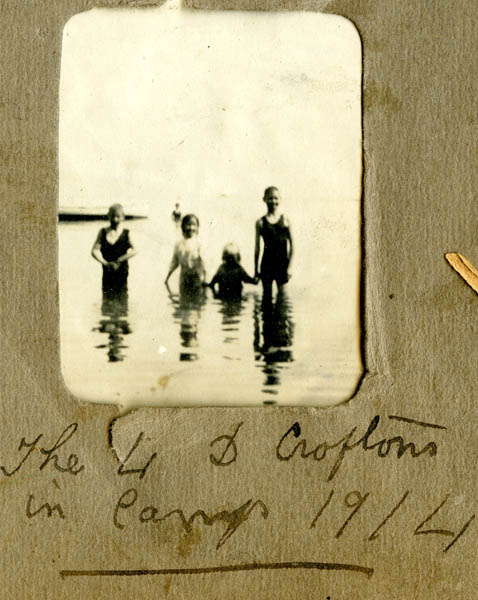 The 4 D Croftons
in Camp 1914